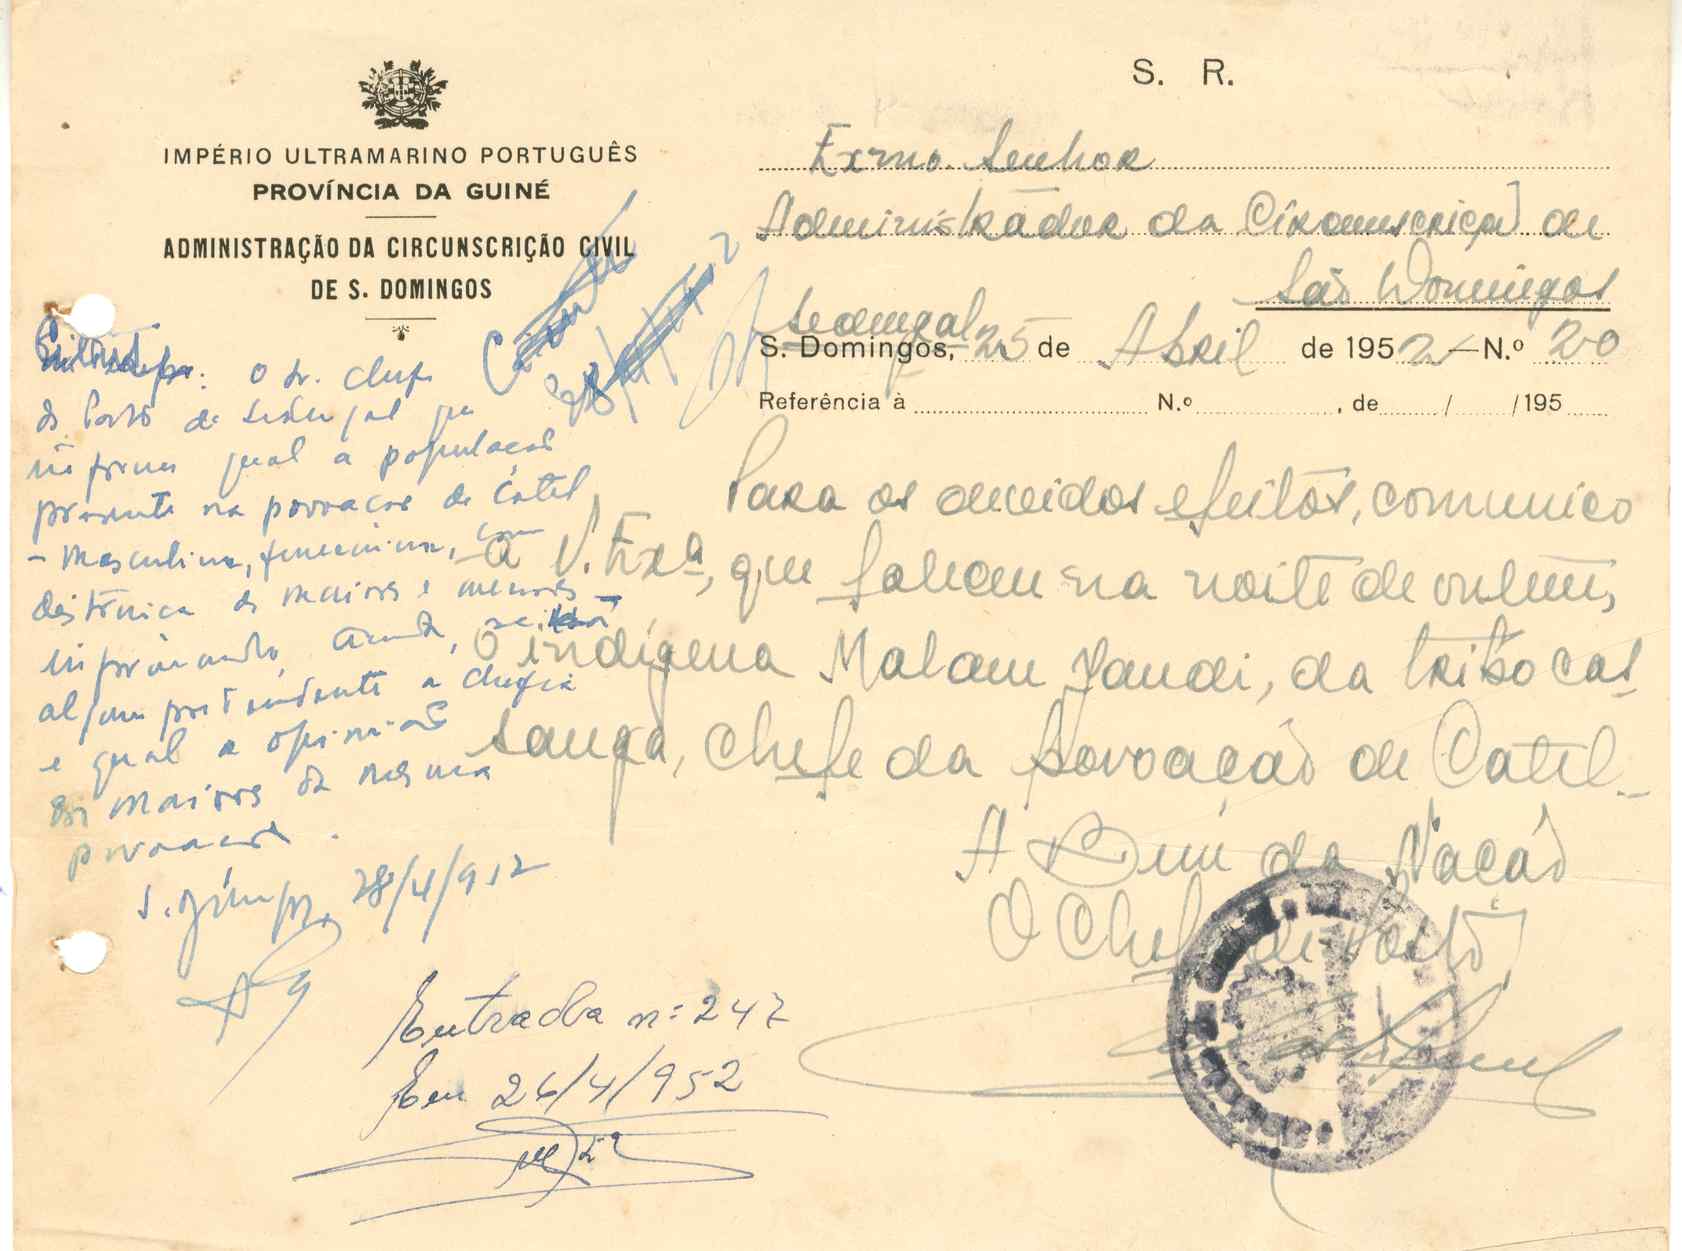 S. R.
IMPÉRIO ULTRAMARINO PORTUGUÊS
PROVÍNCIA DA GUINÉ
ADMINISTRAÇÃO DA CIRCUNSCRIÇÃO CIVIL
DE S. DOMINGOS
Exmo. Senhor
Administrador da Circunscrição de
São Domingos
Sedengal
S. Domingos, 25 de Abril de 1952 — N.º 20
Referência à N.º , de / /195
Para os devidos efeitos, comunico
a V. Exª, que faleceu na noite de ontem,
o indígena Malam Jandi, da tribo cas
sanga, chefe da povoação de Catel.
A Bem da Nação
O Chefe de Posto,
O sr. chefe
do Posto de Sedengal que
informe qual a população
presente na povoação de Catel
- masculina, feminina, com
destrinça de maiores e menores -
informando, ainda, se há
algum pretendente a chefia
e qual a opinião
dos maiores da mesma
povoação.
S. Domingos, 28/4/952
Entrada nº 247
Em 26/4/952